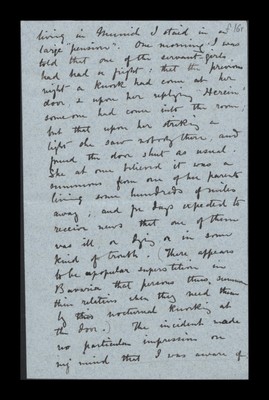 living in Munich I staid in a
large "pension". One morning I was
told that one of the servant-girls
had had a fright; that the previous
night a knock had come at her
door & upon her replying "Herein"
someone had come into the room;
but that upon her striking a
light she saw nobody there, and
found the door shut as usual.
She at once believed it was a
summons from one of her parents
living some hundreds of miles
away; and for days expected to
receive news that one of them
was ill or dying or in some
kind of trouble. (There appears
to be a popular superstition in
Bavaria that persons thus summon
their relatives when they need them
by this nocturnal knocking at
the door.) The incident made
no particular impression on
my mind that I was aware of